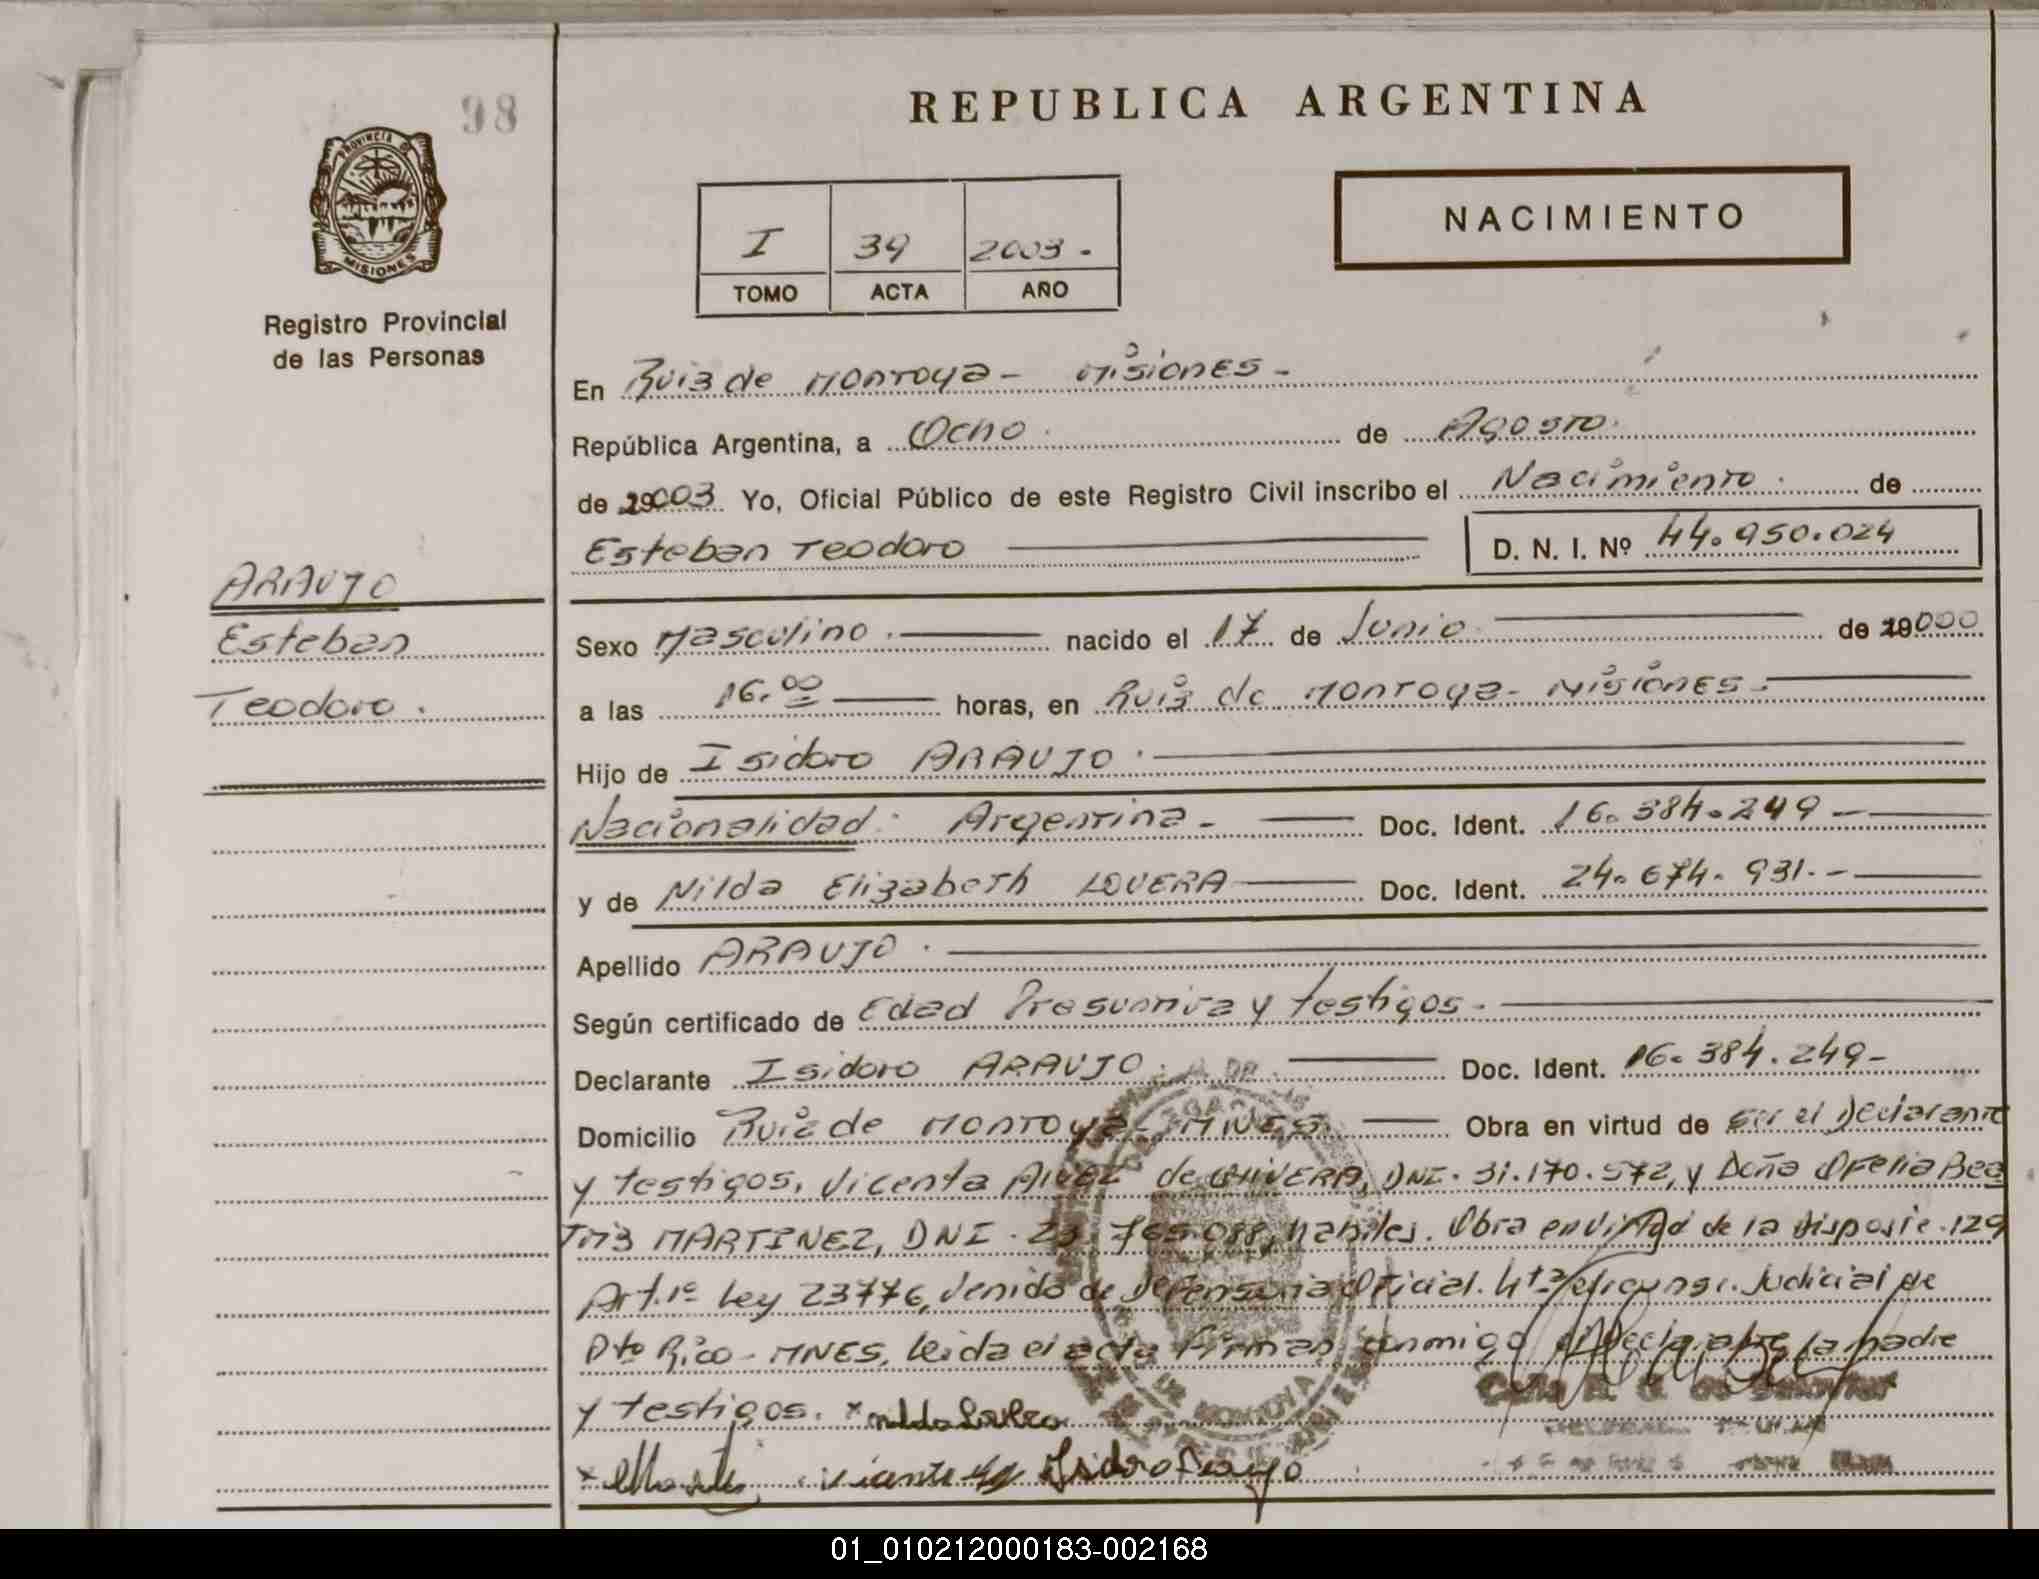 98
REPUBLICA ARGENTINA
PROVINCIA DE
MISIONES
Registro Provincial
de las Personas
I 39 2003.-
TOMO ACTA AÑO
NACIMIENTO
En Ruiz de Montoya - Misiones -
República Argentina, a Ocho. de Agosto.
de 2003 Yo, Oficial Público de este Registro Civil inscribo el Nacimiento. de
Esteban Teodoro D. N. I. Nº 44.950.024
ARAUJO
Esteban
Teodoro.
Sexo Masculino. nacido el 17 de Junio de 2000
a las 16.00 horas, en Ruiz de Montoya - Misiones -
Hijo de Isidoro ARAUJO.
Nacionalidad: Argentina - Doc. Ident. 16.384.249 -
y de Nilda Elizabeth LOVERA Doc. Ident. 24.674.931.-
Apellido ARAUJO.
Según certificado de Edad Presuntiva y testigos.
Declarante Isidoro ARAUJO. Doc. Ident. 16.384.249-
Domicilio Ruiz de Montoya - MNES Obra en virtud de ser el Declarante
y testigos, Vicenta de DNI. 31.170.572, y Doña Ofelia Bea
triz MARTINEZ, DNI. 23.765.088, habiles. Obra en virtud de la disposic. 129
Art. 1º Ley 23776, venido de Defensoria Oficial. 4ta Judicial de
Pto Rico - MNES, leida el acta firman conmigo Declarante, la madre
y testigos. x
x Isidro
01_010212000183-002168